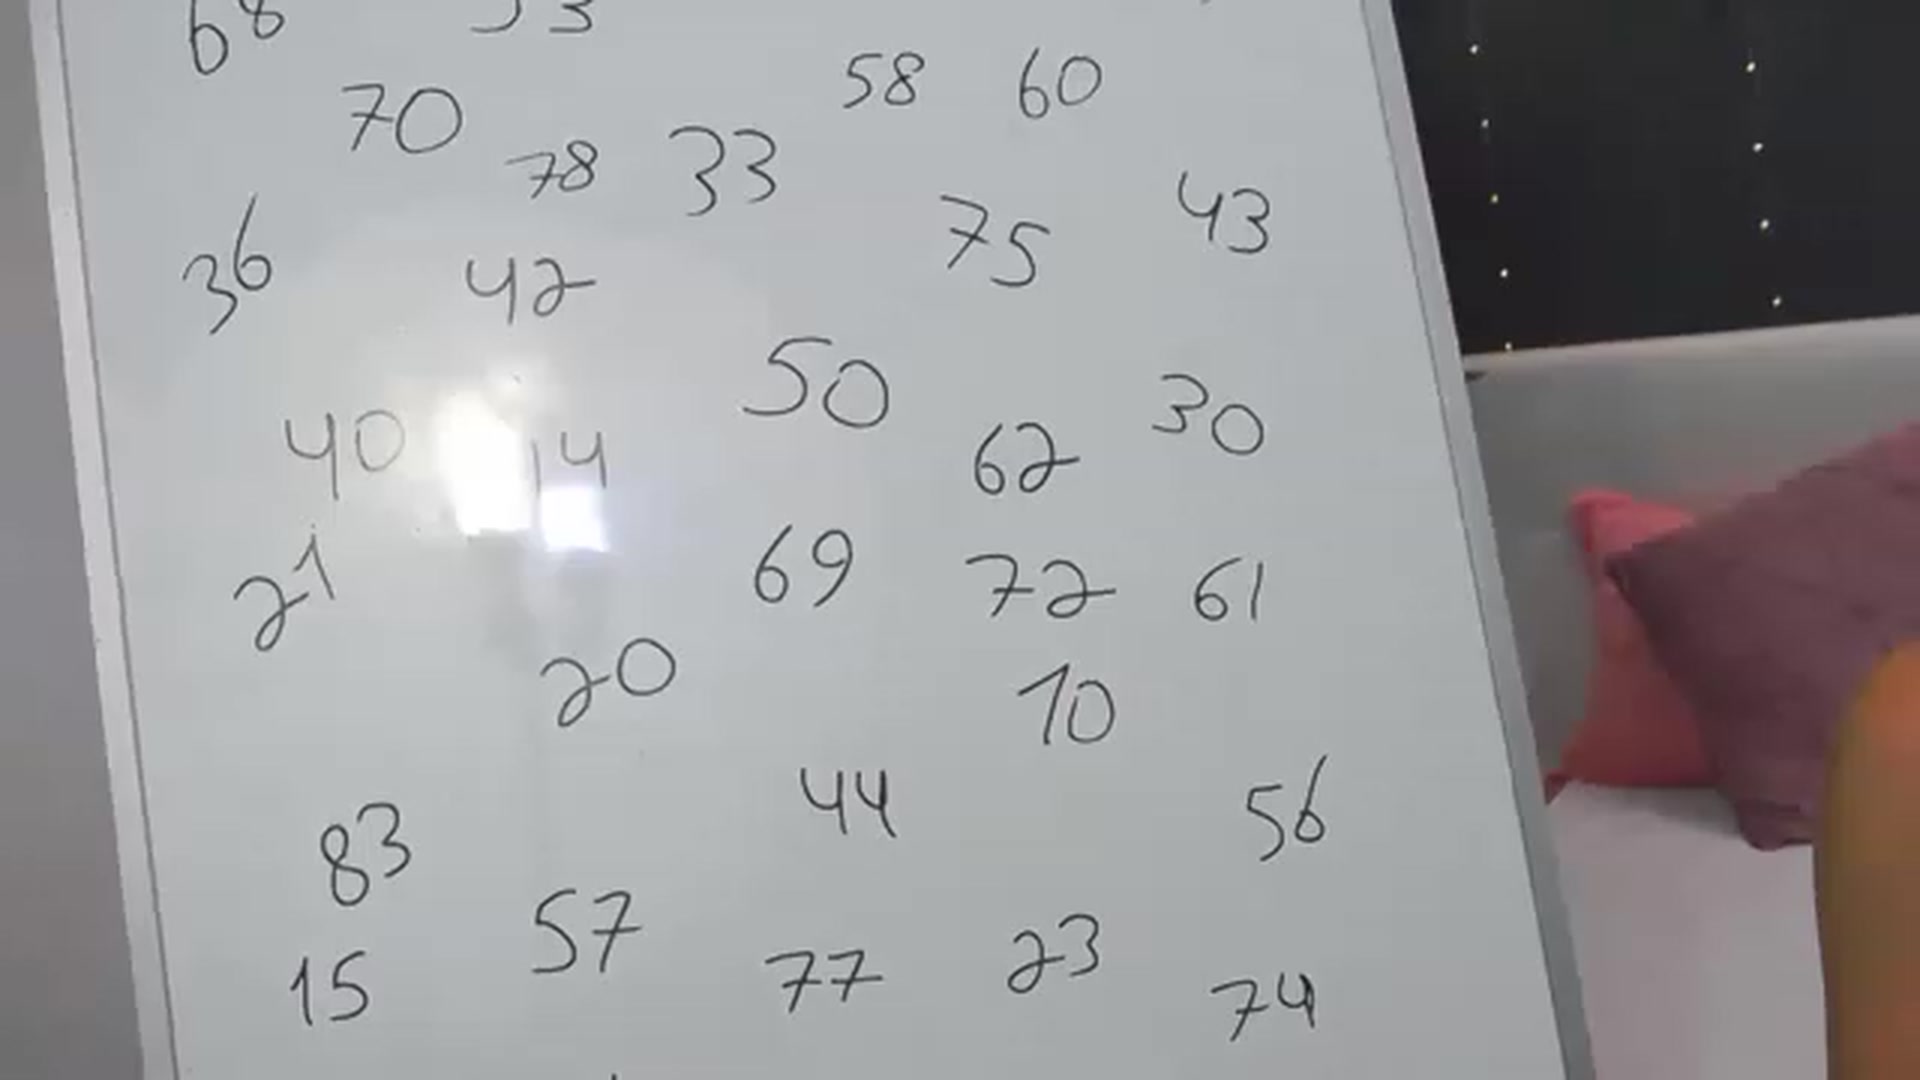 68
58 60
70
78 33
75 43
36 42
50
30
40 14 62
69 72 61
21
20 10
44 56
83
57
15 77 23 74